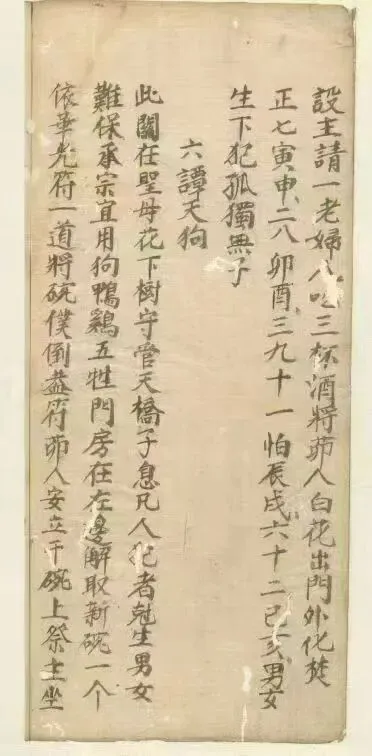 設主請一老婦人吃三杯酒將茆人白花出門外化焚
正七寅申二八卯酉三九十一怕辰戌六十二已亥男女
生下犯孤獨無子
六譚天狗
此關在聖母花下樹守管天橋子息凡人犯者尅生男女
難保承宗宜用狗鴨鷄五牲門房在左邊解取新碗一个
依華光符一道將碗僕倒蓋符茆人安立于碗上祭主坐